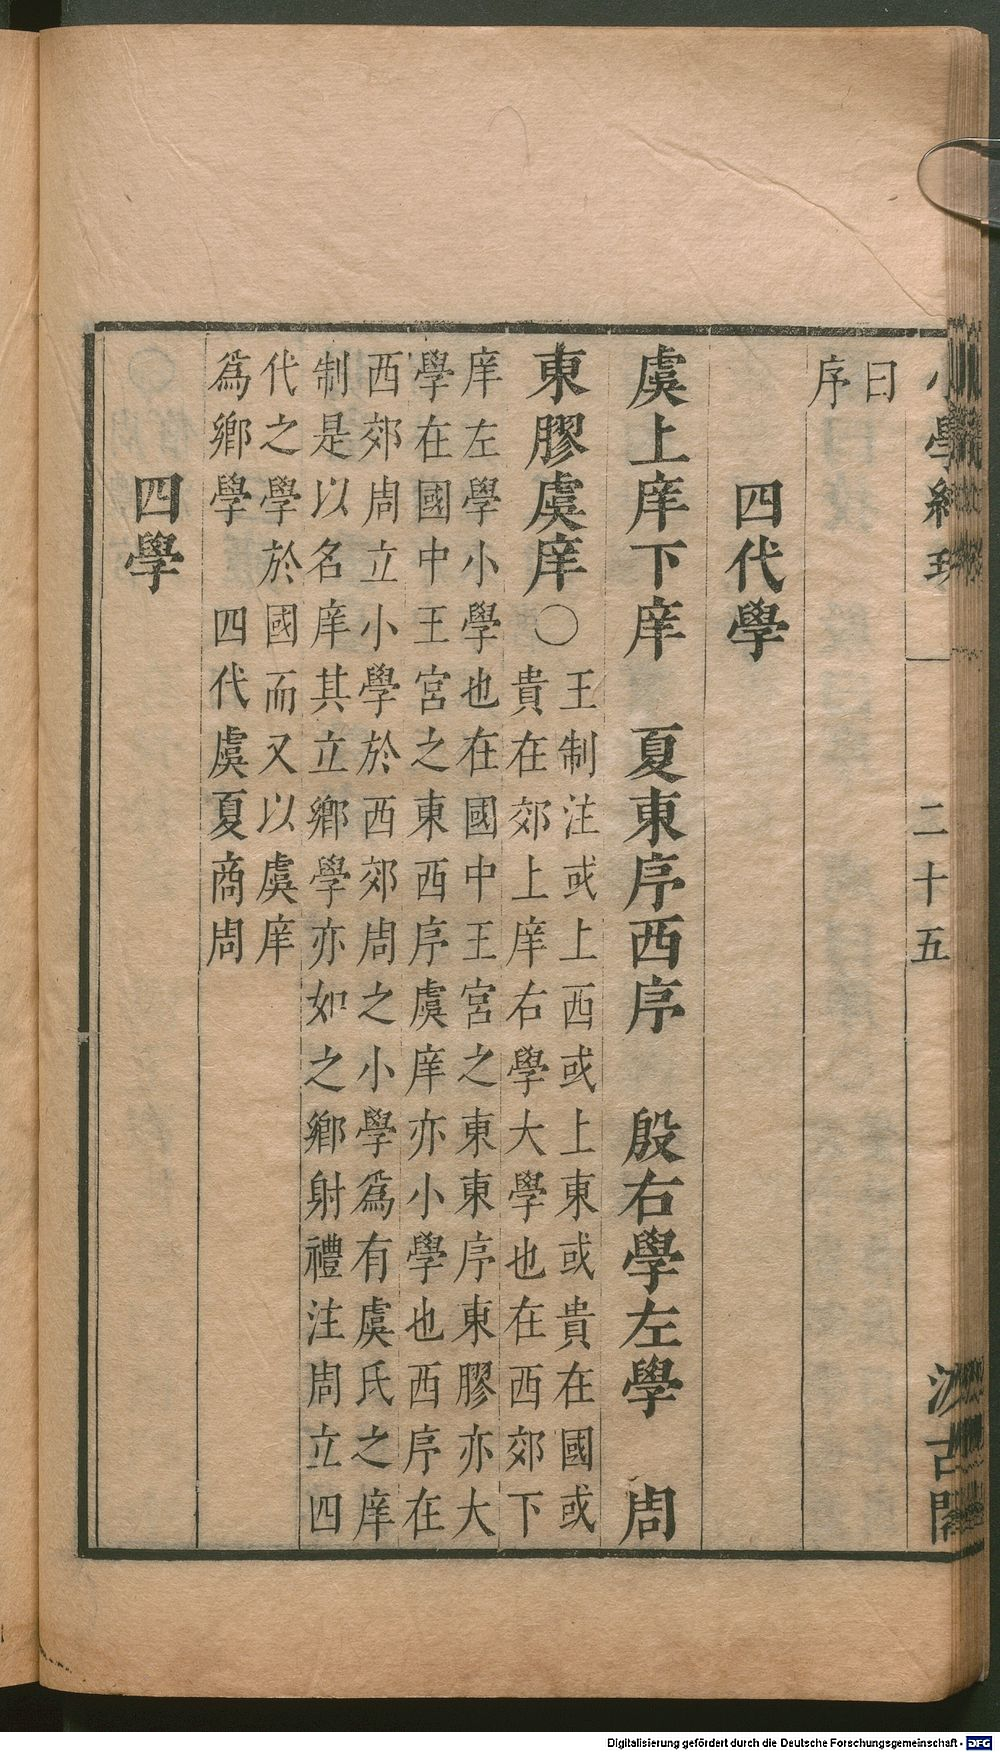 小學紺珠 二十五 汲古閣
曰
序
四代學
虞上庠下庠 夏東序西序 殷右學左學 周
東膠虞庠〇王制注或上西或上東或貴在國或
貴在郊上庠右學大學也在西郊下
庠左學小學也在國中王宮之東東序東膠亦大
學在國中王宮之東西序虞庠亦小學也西序在
西郊周立小學於西郊周之小學爲有虞氏之庠
制是以名庠其立鄉學亦如之鄉射禮注周立四
代之學於國而又以虞庠
爲鄉學 四代虞夏商周
四學
Digitalisierung gefördert durch die Deutsche Forschungsgemeinschaft - DFG